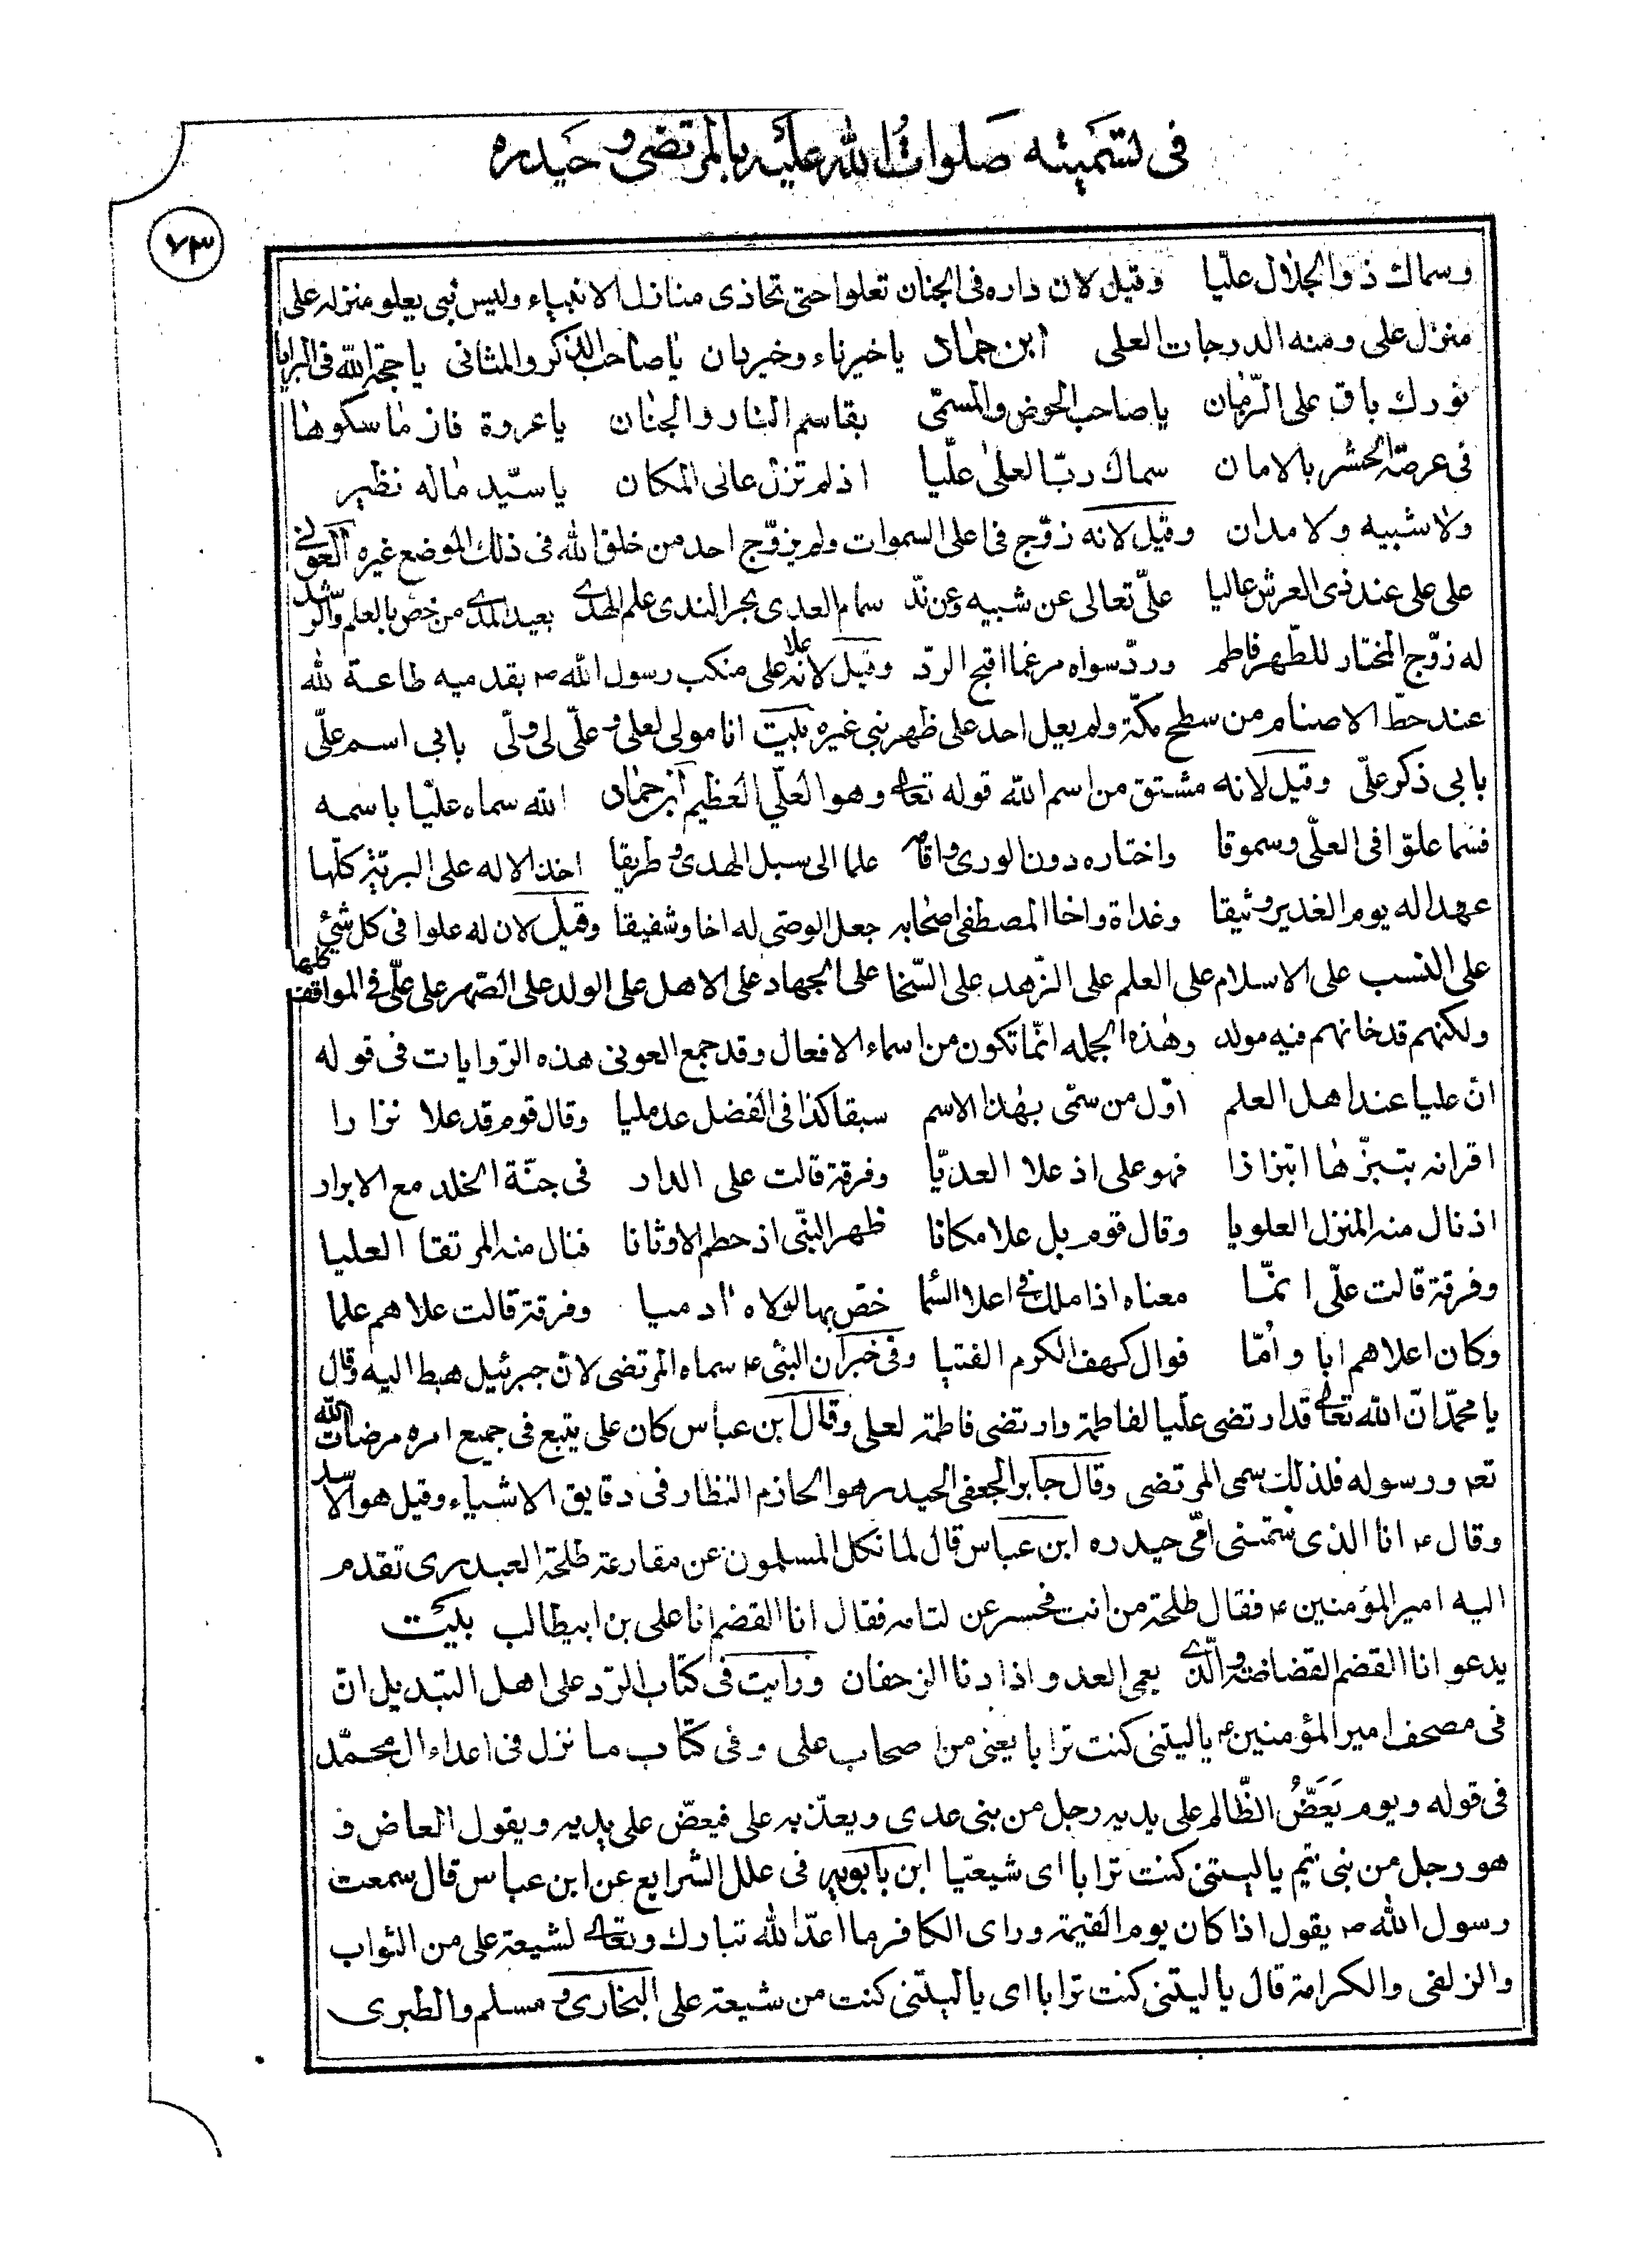 في تسميته صلوات الله عليه بالمرتضى و حيدره
٧٣
وسماك ذو الجلال عليّا وقيل لان داره فى الجنان تعلوا حتى تحاذى منازل الانبياء وليس نبى يعلو منزله على
منزل على ومنه الدرجات العلى ابن حماد يا خيرناء وخيربان يا صاحب الذكر والمثانى يا حجة الله فى البرايا
نورك باق على الزمان يا صاحب الحوض والمسمّى بقاسم النار والجنان يا عروة فاز ماسكوها
فى عرصة الحشر بالامان سماك ربّ العلى عليّا اذ لم تزل عانى المكان يا سيّد ماله نظير
ولا شبيه ولا مدان وقيل لانه زوّج فى اعلى السموات ولم يزوّج احد من خلق الله فى ذلك الموضع غيره العونى
على على عند ذى العرش عاليا علىّ تعالى عن شبيه وعن ندّ سمام العدى بحر الندى علم الهدى بعيد المدى من خصّ بالعلم والرشد
له زوّج المختار للطّهر فاطم وردّ سواه مرغما اقبح الردّ وقيل لانه علا على منكب رسول الله ص بقدميه طاعة لله
عند حطّ الاصنام من سطح مكّة ولم يعل احد على ظهر نبى غيره بليت انا مولى لعلى و علىّ لى ولىّ بابى اسم علىّ
بابى ذكر علىّ وقيل لانه مشتق من اسم الله قوله تعالى وهو العلىّ العظيم ابن حماد الله سماه عليّا باسمه
فسما علوّا فى العلى وسموقا واختاره دون الورى واقامه علما الى سبل الهدى وطريقا اخذ الاله على البريّة كلّها
عهدا له يوم الغدير وثيقا وغداة واخا المصطفى اصحابه جعل الوصى له اخا وشفيقا وقيل لان له علوا فى كل شئ
على النسب على الاسلام على العلم على الزهد على السّخا على الجهاد على الاهل على الولد على الصّهر على علىّ فى المواقف كلها
ولكنهم قد خانهم فيه مولد وهذه الجمله انّما تكون من اسماء الافعال وقد جمع العونى هذه الرّوايات فى قوله
انّ عليا عند اهل العلم اوّل من سمّى بهذا الاسم سبقا كذا فى الفضل عد مليا وقال قوم قد علا نزا را
اقرانه بتبزّها ابتزازا فهو على اذ علا العديّا وفرقة قالت على الدار فى جنّة الخلد مع الابرار
اذ نال منه المنزل العلويا وقال قوم بل علا مكانا ظهر النبّى اذ حطم الاوثانا فنال منه المرتقا العليا
وفرقة قالت علىّ انمّا معناه اذ املك فى اعلا السّما خصّ بها لولاه ادميا وفرقة قالت علاهم علما
وكان اعلاهم ابا و امّا فوال كهف الكرم الفتيا وفى خبر ان النبى ص سماه المرتضى لانّ جبرئيل هبط اليه قال
يا محمّد انّ الله تعالى قد ارتضى عليّا لفاطمة وارتضى فاطمة لعلى وقال ابن عباس كان على يتبع فى جميع امره مرضات الله
تعم ورسوله فلذلك سمى المرتضى وقال جابر الجعفى الحيدر هو الحازم النظار فى دقايق الاشياء وقيل هو الاسد
وقال ع انا الذى سمّتنى امّى حيدره ابن عباس قال لما نكل المسلمون عن مقارعة طلحة العبدرى تقدم
اليه امير المؤمنين ع فقال طلحة من انت فحسر عن لثامه فقال انا القضم انا على بن ابيطالب بليت
يدعو انا القضم القضاضة والّذى يعمى العدو اذا دنا الزحفان ورايت فى كتاب الرّد على اهل التبديل انّ
فى مصحف امير المؤمنين ع يا ليتنى كنت ترابا يعنى من اصحاب على وفى كتاب ما نزل فى اعداء ال محمّد
فى قوله ويوم يَعَضُّ الظّالم على يديه رجل من بنى عدى ويعذّبه على فيعضّ على يديه ويقول العاض و
هو رجل من بنى تيم يا ليتنى كنت ترابا اى شيعيّا ابن بابويه فى علل الشرايع عن ابن عباس قال سمعت
رسول الله ص يقول اذا كان يوم القيمة وراى الكافر ما اعدّ الله تبارك وتعالى لشيعة على من الثواب
والزلفى والكرامة قال يا ليتنى كنت ترابا اى يا ليتنى كنت من شيعة على البخارى و مسلم والطبرى